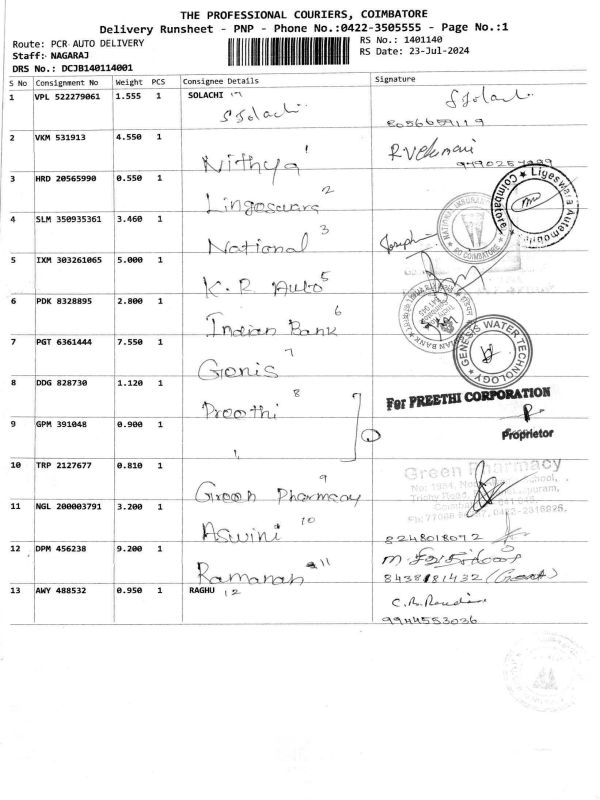 THE PROFESSIONAL COURIERS, COIMBATORE
Delivery Runsheet - PNP - Phone No.:0422-3505555 - Page No.:1
Route: PCR AUTO DELIVERY
RS No.: 1401140
Staff: NAGARAJ
RS Date: 23-Jul-2024
DRS No.: DCJB140114001
S No Consignment No Weight PCS Consignee Details Signature
1 VPL 522279061 1.555 1 SOLACHI
S Solachi
8056659119
2 VKM 531913 4.550 1
Nithya 1
3 HRD 20565990 0.550 1
Lingeswara 2
Ligeswara Automobile
Coimbatore
4 SLM 350935361 3.460 1
National 3
Joseph
5 IXM 303261065 5.000 1
K.R Auto 5
6 PDK 8328895 2.800 1
Indian Bank 6
INDIAN BANK
7 PGT 6361444 7.550 1
Genis 7
GENESIS WATER TECHNOLOGY
8 DDG 828730 1.120 1
Preethi 8
For PREETHI CORPORATION
Proprietor
9 GPM 391048 0.900 1
10 TRP 2127677 0.810 1
Green Pharmacy 9
Green Pharmacy
11 NGL 200003791 3.200 1
Aswini 10
8248018072
12 DPM 456238 9.200 1
Ramanan 11
13 AWY 488532 0.950 1 RAGHU 12
9944553026